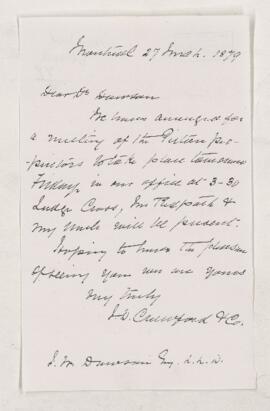 Montreal 27 March. 1879
Dear Dr Dawson
We have arranged for
a meeting of the Pictou pro-
prietors to take place tomorrow
Friday in our office at 3-30
Judge Cross, Mr Redpath &
my Uncle will be present.
Hoping to have the pleasure
of seeing you we are yours
very truly
J.D. Crawford & Co.
J. W. Dawson Esq. L.L.D.